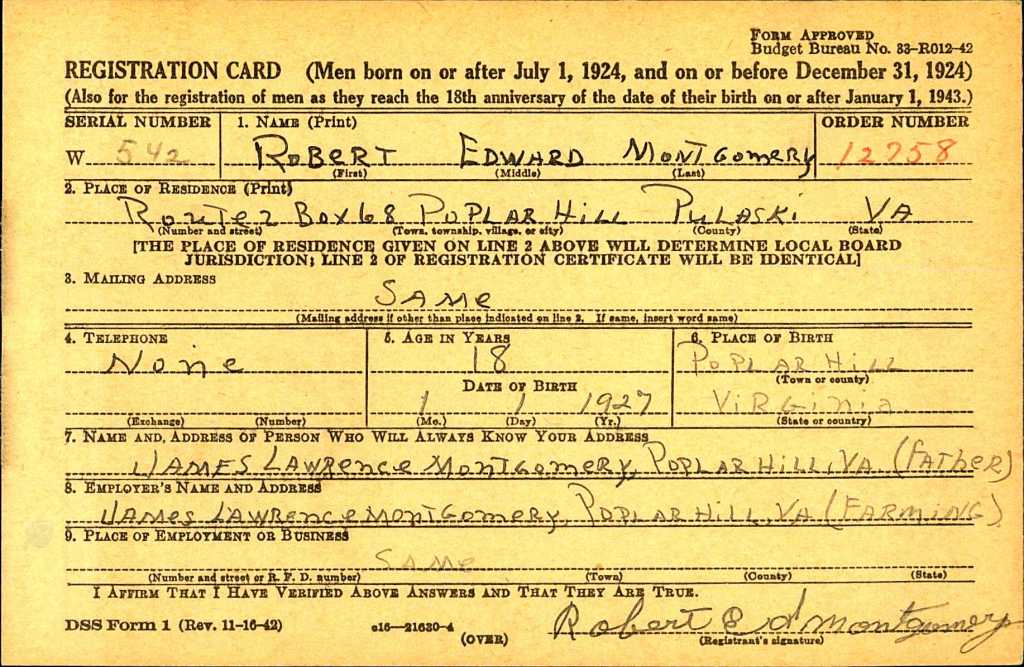 FORM APPROVED
Budget Bureau No. 33-R012-42
REGISTRATION CARD (Men born on or after July 1, 1924, and on or before December 31, 1924)
(Also for the registration of men as they reach the 18th anniversary of the date of their birth on or after January 1, 1943.)
SERIAL NUMBER 1. NAME (Print) ORDER NUMBER
W 542 ROBERT EDWARD MONTGOMERY 12758
(First) (Middle) (Last)
2. PLACE OF RESIDENCE (Print)
Route 2 Box 68 POPLAR Hill PULASKi VA
(Number and street) (Town, township, village, or city) (County) (State)
[THE PLACE OF RESIDENCE GIVEN ON LINE 2 ABOVE WILL DETERMINE LOCAL BOARD
JURISDICTION; LINE 2 OF REGISTRATION CERTIFICATE WILL BE IDENTICAL]
3. MAILING ADDRESS
SAMe
(Mailing address if other than place indicated on line 2. If same, insert word same)
4. TELEPHONE 5. AGE IN YEARS 6. PLACE OF BIRTH
None 18 POPLAR Hill
DATE OF BIRTH (Town or county)
1 1 1927 ViRGinia
(Exchange) (Number) (Mo.) (Day) (Yr.) (State or country)
7. NAME AND ADDRESS OF PERSON WHO WILL ALWAYS KNOW YOUR ADDRESS
JAMES LAWRence MONTGOMERY, POPLAR HILL, VA (FATHER)
8. EMPLOYER'S NAME AND ADDRESS
JAMES LAWRence MONTGOMERY, POPLAR Hill, VA (FARMING)
9. PLACE OF EMPLOYMENT OR BUSINESS
SAMe
(Number and street or R. F. D. number) (Town) (County) (State)
I AFFIRM THAT I HAVE VERIFIED ABOVE ANSWERS AND THAT THEY ARE TRUE.
DSS Form 1 (Rev. 11-16-42) c16—21630-4 (OVER) Robert Ed Montgomery
(Registrant's signature)